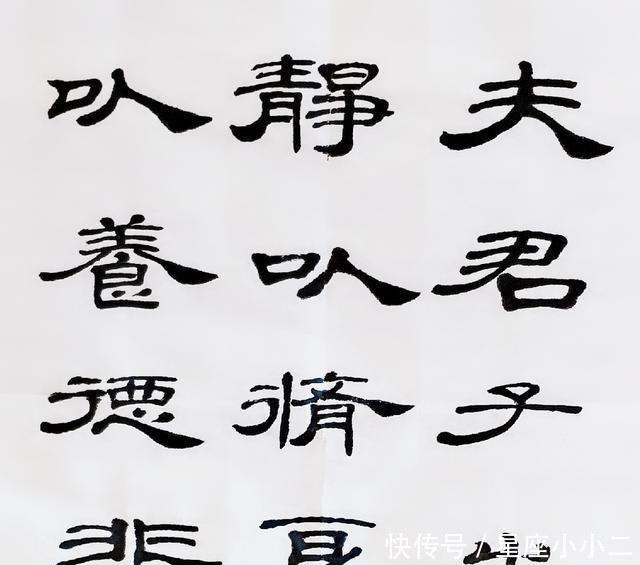 夫君子
靜以脩身
以養德非
快传号 / 星座小小二